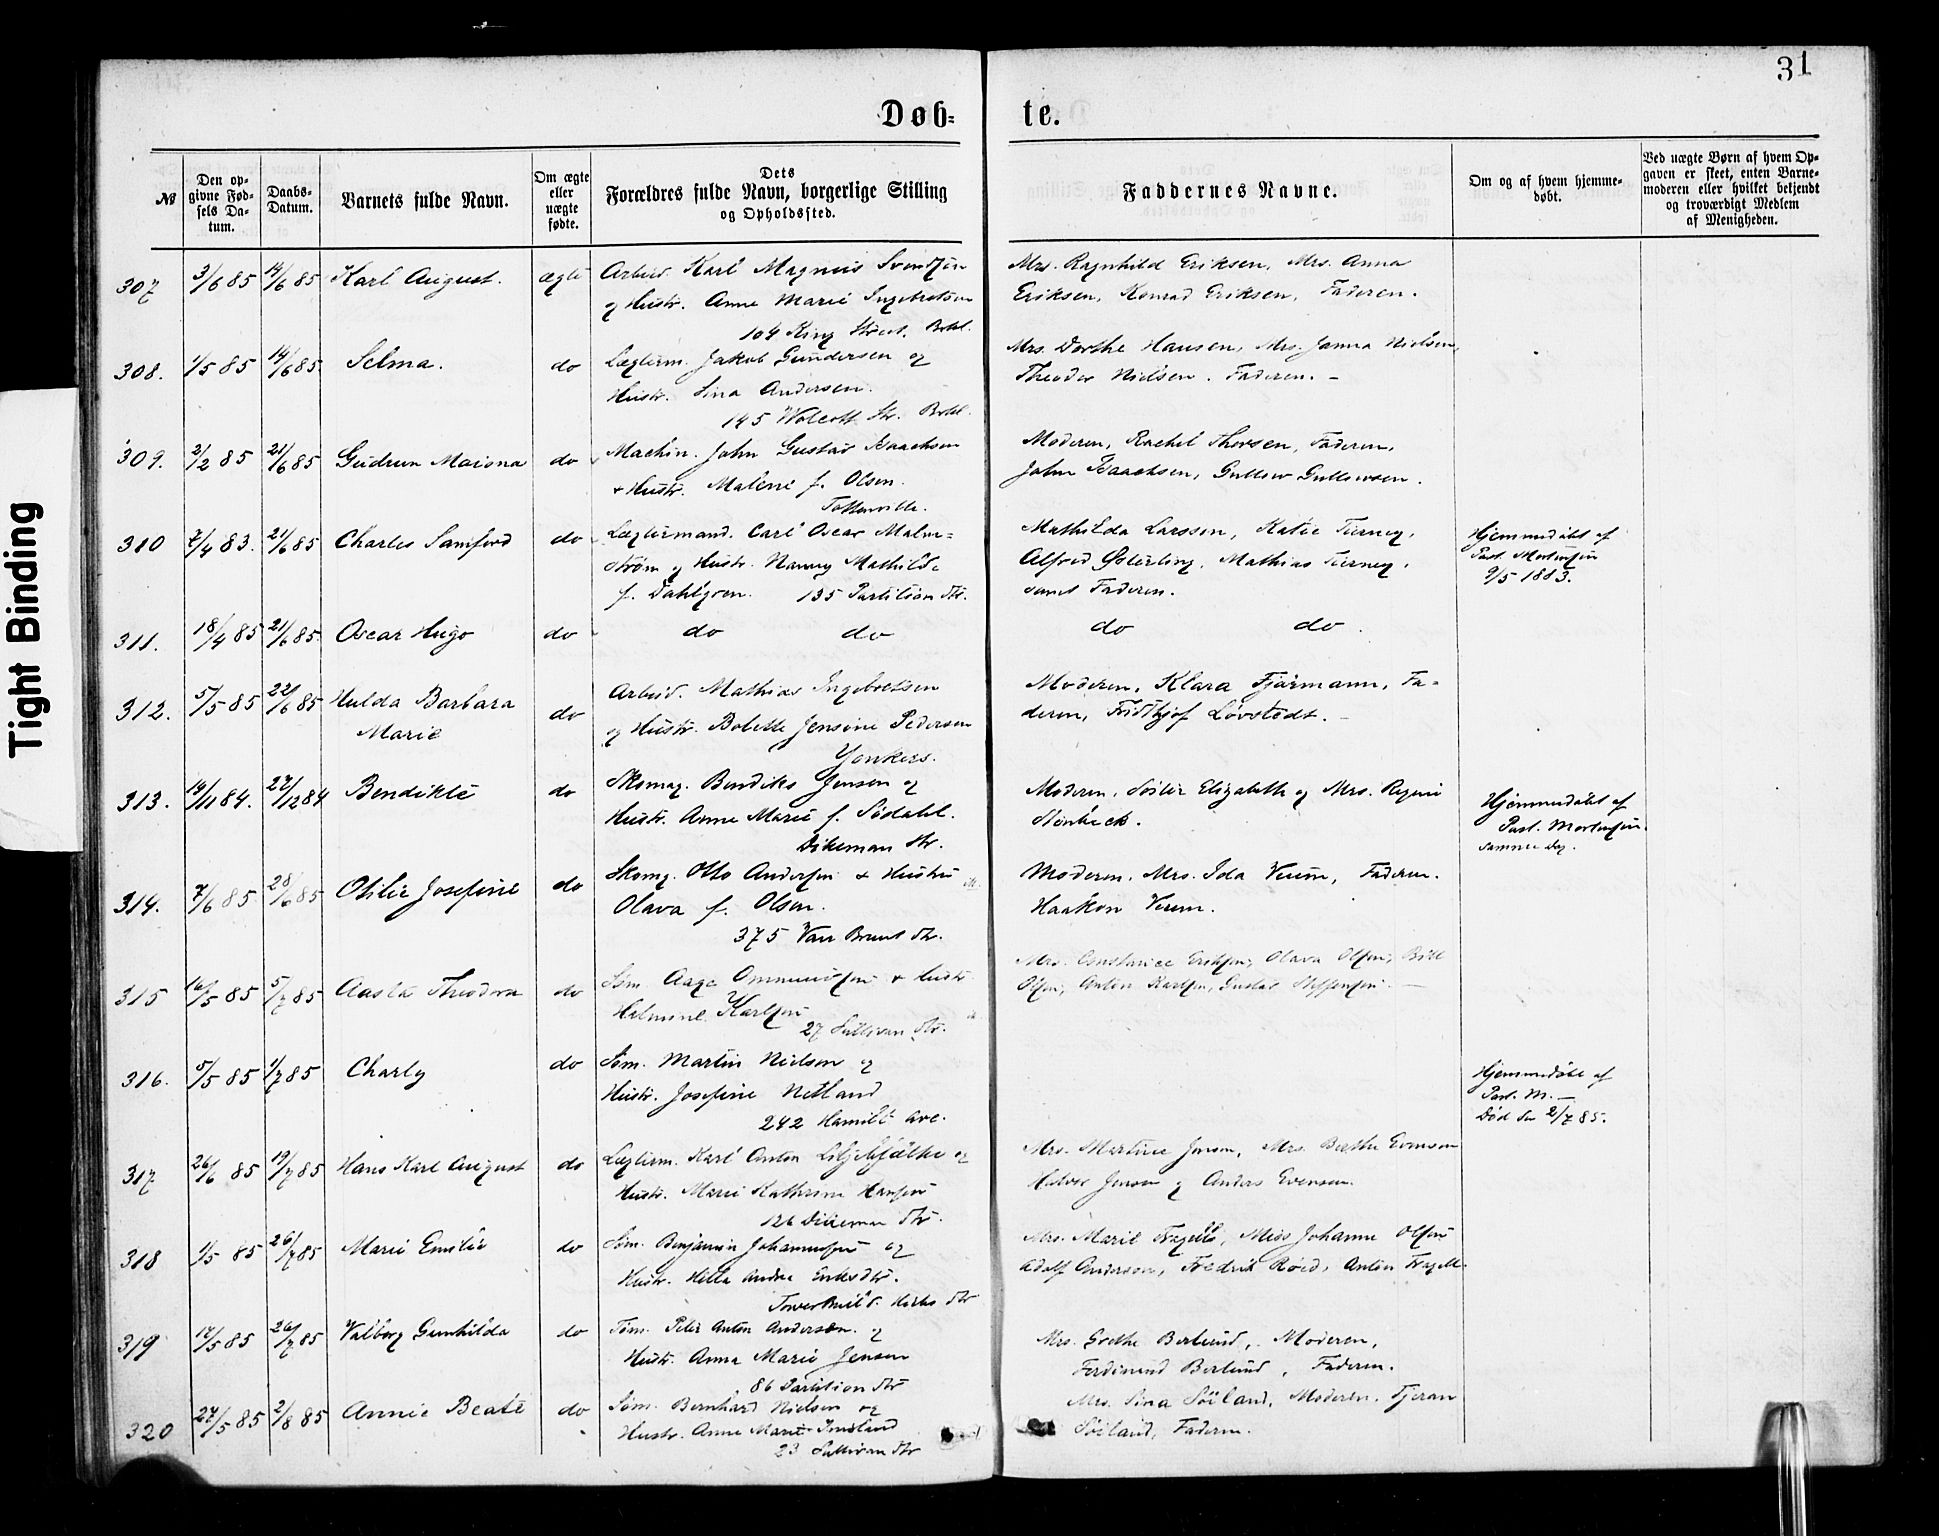 31
Døb-
te.
№
Den op-
givne Fød-
sels Da-
tum.
Daabs-
Datum.
Barnets fulde Navn.
Om ægte
eller
uægte
fødte.
Dets
Forældres fulde Navn, borgerlige Stilling
og Opholdssted.
Faddernes Navne.
Om og af hvem hjemme-
døbt.
Ved uægte Børn af hvem Op-
gaven er skeet, enten Barne-
moderen eller hvilket bekjendt
og troværdigt Medlem
af Menigheden.
307 3/6 85 14/6 85 Karl August. ægte Arbeid. Karl Magnus Svendsen Mrs. Ragnhild Eriksen, Mrs. Anna
og Hustr. Anne Marie Ingebretsen Eriksen, Konrad Eriksen, Faderen.
104 King Street. Brkl.
308. 1/5 85 14/6 85 Selma. do Lægterm. Jakob Gundersen og Mrs. Dorthe Hansen, Mrs. Janna Nielsen,
Hustr. Sina Andersen. Theodor Nielsen. Faderen. —
145 Wolcott Str. Brkl.
309. 2/2 85 21/6 85 Gudrun Maisna do Machin. John Gustav Isaachsen Moderen, Rachel Thorsen, Faderen,
+ Hustr. Malene f. Olsen. John Isaachsen, Gullow Gullowsen.
Tottenville.
310 7/4 83. 21/6 85 Charles Samford do Lægtermand. Carl Oscar Malm- Mathilda Larsson, Katie Tierney, Hjemmedøbt af
strøm og Hustr. Nanny Mathilde Alfred Østerling, Mathias Tierney, Past. Mortensen
f. Dahlgren. 135 Partition Str. samt Faderen. 9/5 1883.
311. 18/4 85 21/6 85. Oscar Hugo do do do do do.
312. 5/5 85 22/6 85 Hulda Barbara do Arbeid. Mathias Ingebretsen Moderen, Klara Fjärmann, Fa-
Marie og Hustr. Bolette Jensine Pedersen deren, Fridthjof Løvstedt. —
Yonkers.
313. 14/11 84. 27/12 84 Bendikte do Skomag. Bendiks Jensen og Moderen, Søster Elizabeth og Mrs. Regine Hjemmedøbt af
Hustr. Anne Marie f. Sødahl. Stenbeck. Past. Mortensen.
Dikeman Str. samme Dag.
314. 7/6 85 28/6 85 Otilie Josefine do Skomg. Otto Andersen + Hustru Moderen, Mrs. Ida Verum, Faderen.
Olava f. Olsen. Haakon Verum.
375 Van Brunt Str.
315 16/5 85 5/7 85 Aasta Theodora do Søm. Aage Ommundsen + Hustr Mrs. Constance Eriksen, Olava Olsen,
Helmine Karlsen Olsen, Anton Karlsen, Gustav Steffensen. —
27 Sullivan Str.
316. 5/5 85 1/7 85 Charly do Søm. Martin Nielsen og Hjemmedøbt af
Hustr. Josefine Netland Past. M. —
242 Hamilt ave. Død den 2/7 85.
317 26/6 85 19/7 85 Hans Karl August do Lægterm. Karl Anton Liljehjälke og Mrs. Martine Jensen, Mrs. Berthe Evensen
Hustr. Marie Kathrine Hansen Halvor Jensen og Anders Evensen.
126 Dikeman Str.
318 1/5 85 26/7 85 Marie Emilie do Søm. Benjamin Johannesen og Mrs. Marie Fragell, Miss Johanne Olsen
Hustr. Hilla Andrea Eriksdtr. Adolf Anderson, Fredrik Røed, Anton Fragell.
Tower Build. Hicks Str
319 17/5 85 26/7 85 Valborg Gunhilda do Tøm. Peter Anton Andersen. og Mrs. Grethe Berlund, Moderen,
Hustr. Anna Marie Jensen Ferdinand Berlund, Faderen.
86 Partition Str
320 27/5 85 2/8 85 Annie Beate do Søm. Bernhard Nielsen og Mrs. Sina Søiland, Moderen. Tjeran
Hustr. Anne Marie Søiland, Faderen.
23 Sullivan Str
Tight Binding